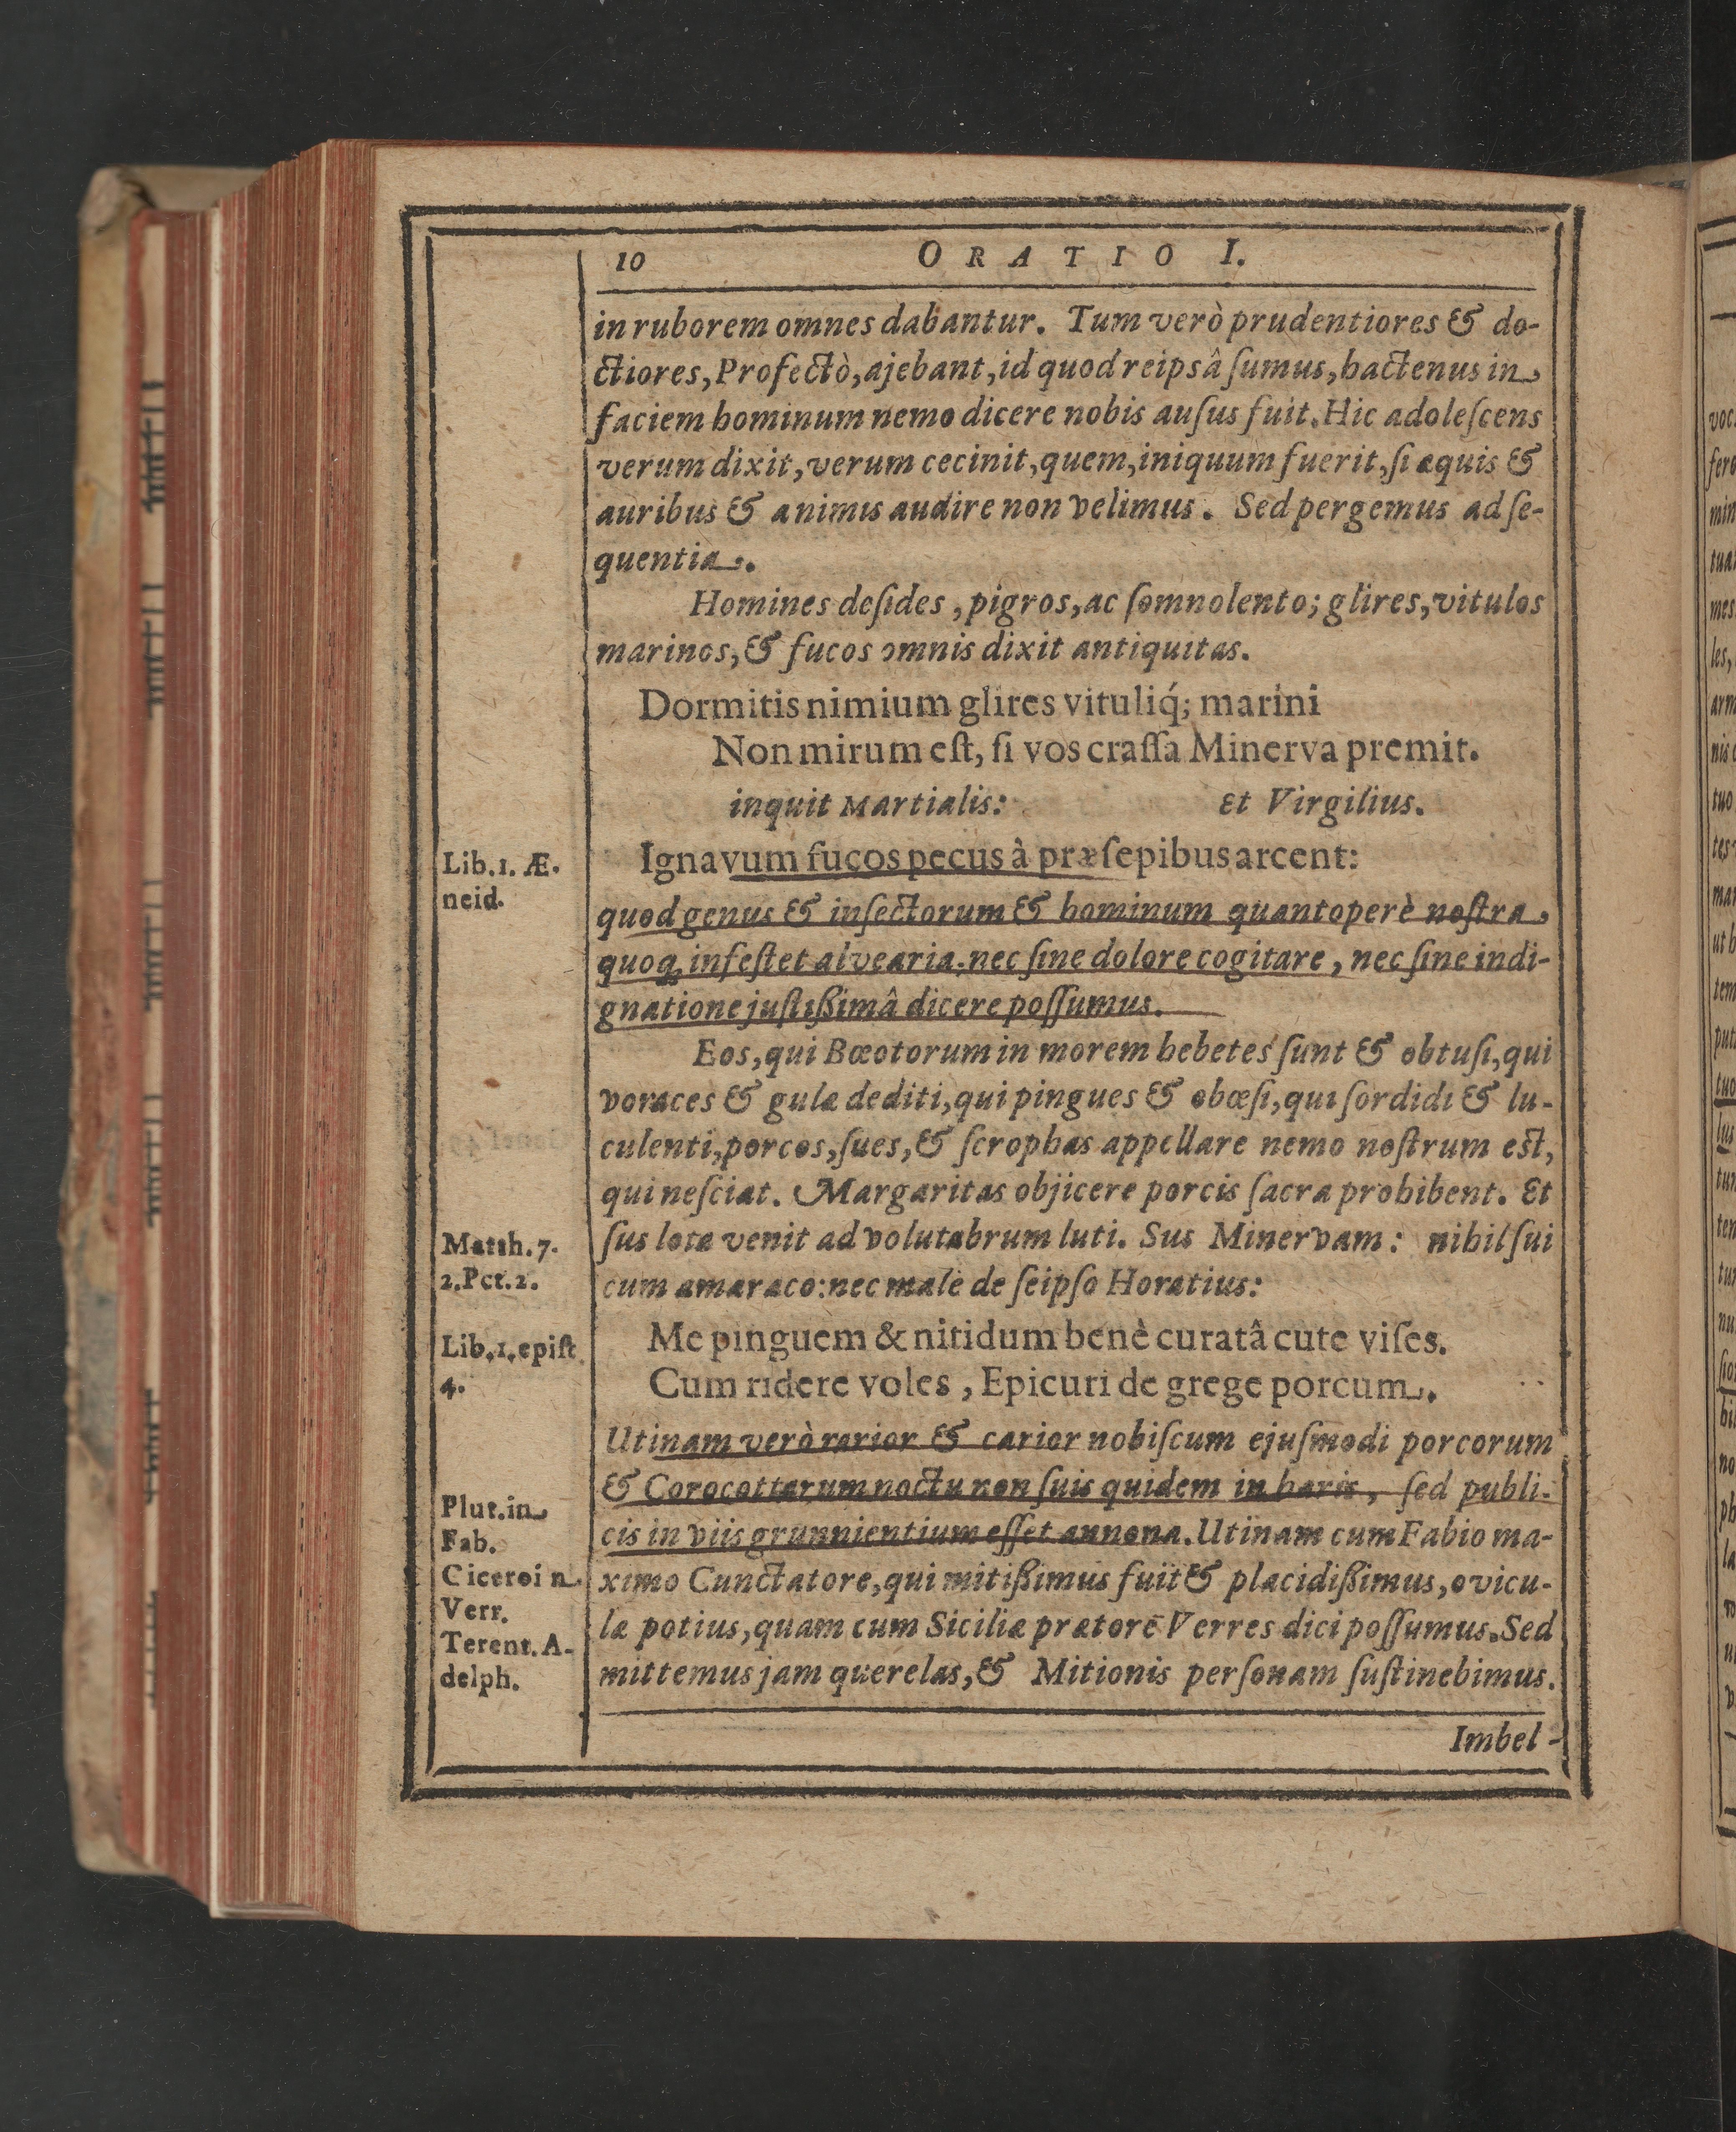 10 ORATIO I.
in ruborem omnes dabantur. Tum verò prudentiores & do-
ctiores, Profectò, ajebant, id quod reipsâ ſumus, hactenus in
faciem hominum nemo dicere nobis auſus fuit. Hic adoleſcens
verum dixit, verum cecinit, quem, iniquum fuerit, ſi æquis &
auribus & animis audire non velimus. Sed pergemus ad ſe-
quentia.
Homines deſides, pigros, ac ſomnolento; glires, vitulos
marinos, & fucos omnis dixit antiquitas.
Dormitis nimium glires vituliq́; marini
Non mirum eſt, ſi vos craſſa Minerva premit.
inquit Martialis: Et Virgilius.
Lib. 1. Æ-
neid.
Ignavum fucos pecus à præſepibus arcent:
quod genus & inſectorum & hominum quantoperè noſtra
quoq; infeſtet alvearia, nec ſine dolore cogitare, nec ſine indi-
gnatione juſtißimâ dicere poſſumus.
Eos, qui Bœotorum in morem hebetes ſunt & obtuſi, qui
voraces & gulæ dediti, qui pingues & obœſi, qui ſordidi & lu-
culenti, porcos, ſues, & ſcrophas appellare nemo noſtrum eſt,
qui neſciat. Margaritas objicere porcis ſacra prohibent. Et
Matth. 7.
2. Pet. 2.
ſus lota venit ad volutabrum luti. Sus Minervam: nihil ſui
cum amaraco: nec malè de ſeipſo Horatius:
Lib. 1. epiſt
4.
Me pinguem & nitidum benè curatâ cute viſes.
Cum ridere voles, Epicuri de grege porcum.
Utinam verò rarior & carior nobiſcum ejuſmodi porcorum
& Corocottarum noctu non ſuis quidem in haris, ſed publi-
cis in viis grunnientium eſſet annona. Utinam cum Fabio ma-
ximo Cunctatore, qui mitißimus fuit & placidißimus, ovicu-
læ potius, quam cum Siciliæ prætorē Verres dici poſſumus. Sed
mittemus jam querelas, & Mitionis perſonam ſuſtinebimus.
Plut. in
Fab.
Cicero in
Verr.
Terent. A-
delph.
Imbel-